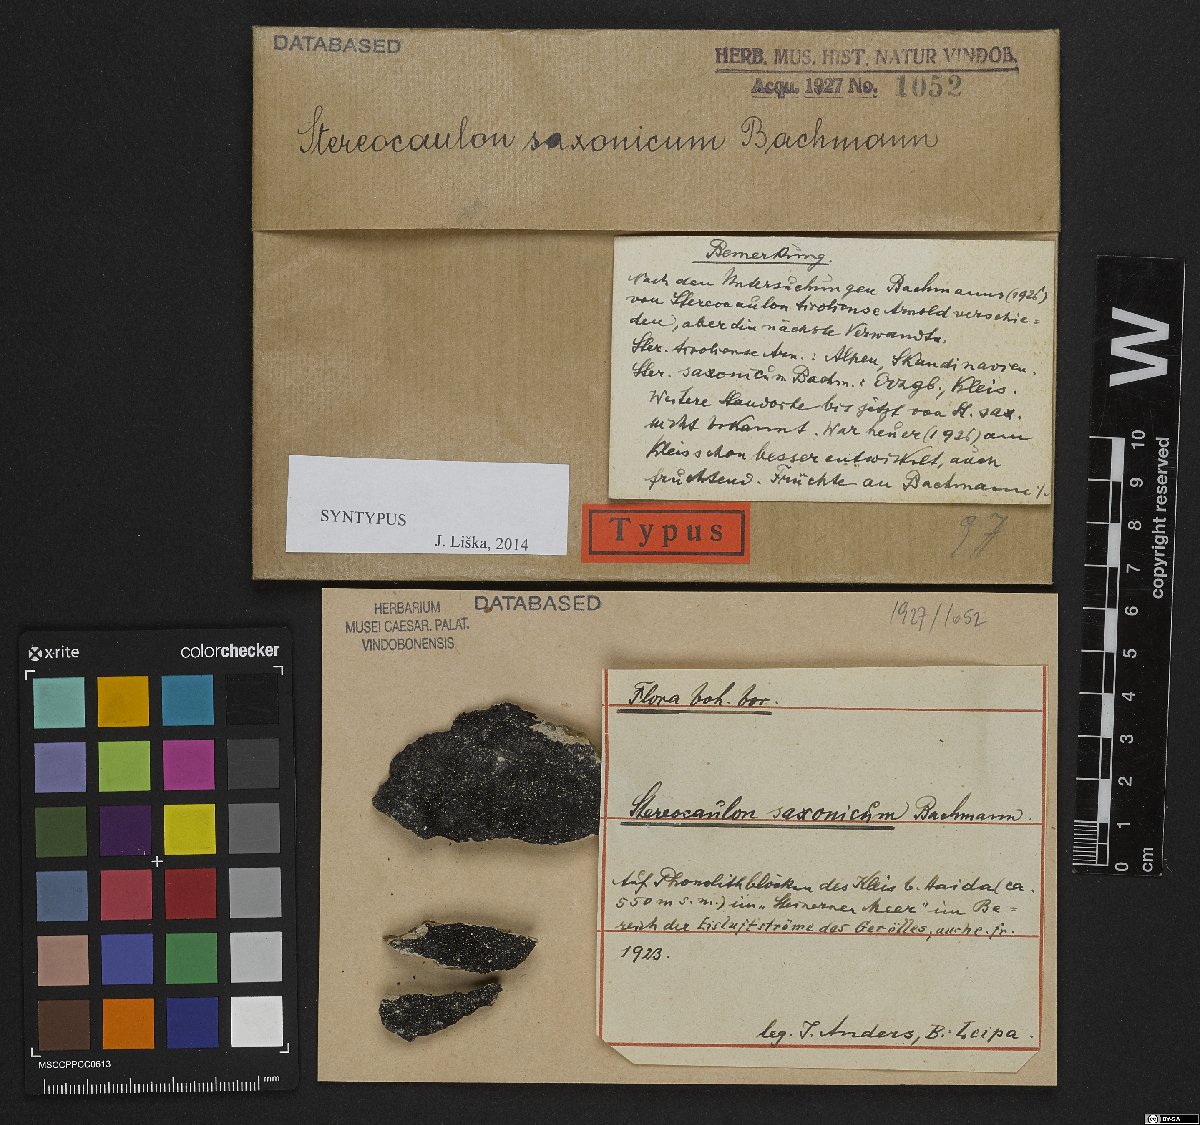 DATABASED
HERB. MUS. HIST. NATUR VINDOB.
Acqu. 1927 No. 1052
Stereocaulon saxonicum Bachmann
Bemerkung.
Nach den Untersuchungen Bachmanns (1926)
von Stereocaulon tiroliense Arnold verschie=
den, aber die nächste Verwandte.
Ster. tiroliense Arn.: Alpen, Skandinavien.
Ster. saxonicum Bachm.: Erzgb., Kleis.
Weitere Standorte bis jetzt von St. sax.
nicht bekannt. War heuer (1926) am
Kleis schon besser entwickelt, auch
fruchtend. Früchte an Bachmann ./.
SYNTYPUS
J. Liška, 2014
Typus
97
HERBARIUM
MUSEI CAESAR. PALAT.
VINDOBONENSIS
DATABASED
1927/1052
Flora boh. bor.
Stereocaulon saxonicum Bachmann.
Auf Phonolithblöcken des Kleis b. Haida (ca.
550 m s. m.) im "Steinernen Meer" im Be=
reich der Eisluftströme des Gerölles, auch c. fr.
1923.
leg. J. Anders, B. Leipa.
x-rite
colorchecker
MSCCPPCC0613
mm
W
copyright reserved
10
9
8
7
6
5
4
3
2
1
0
cm
cc
BY-SA